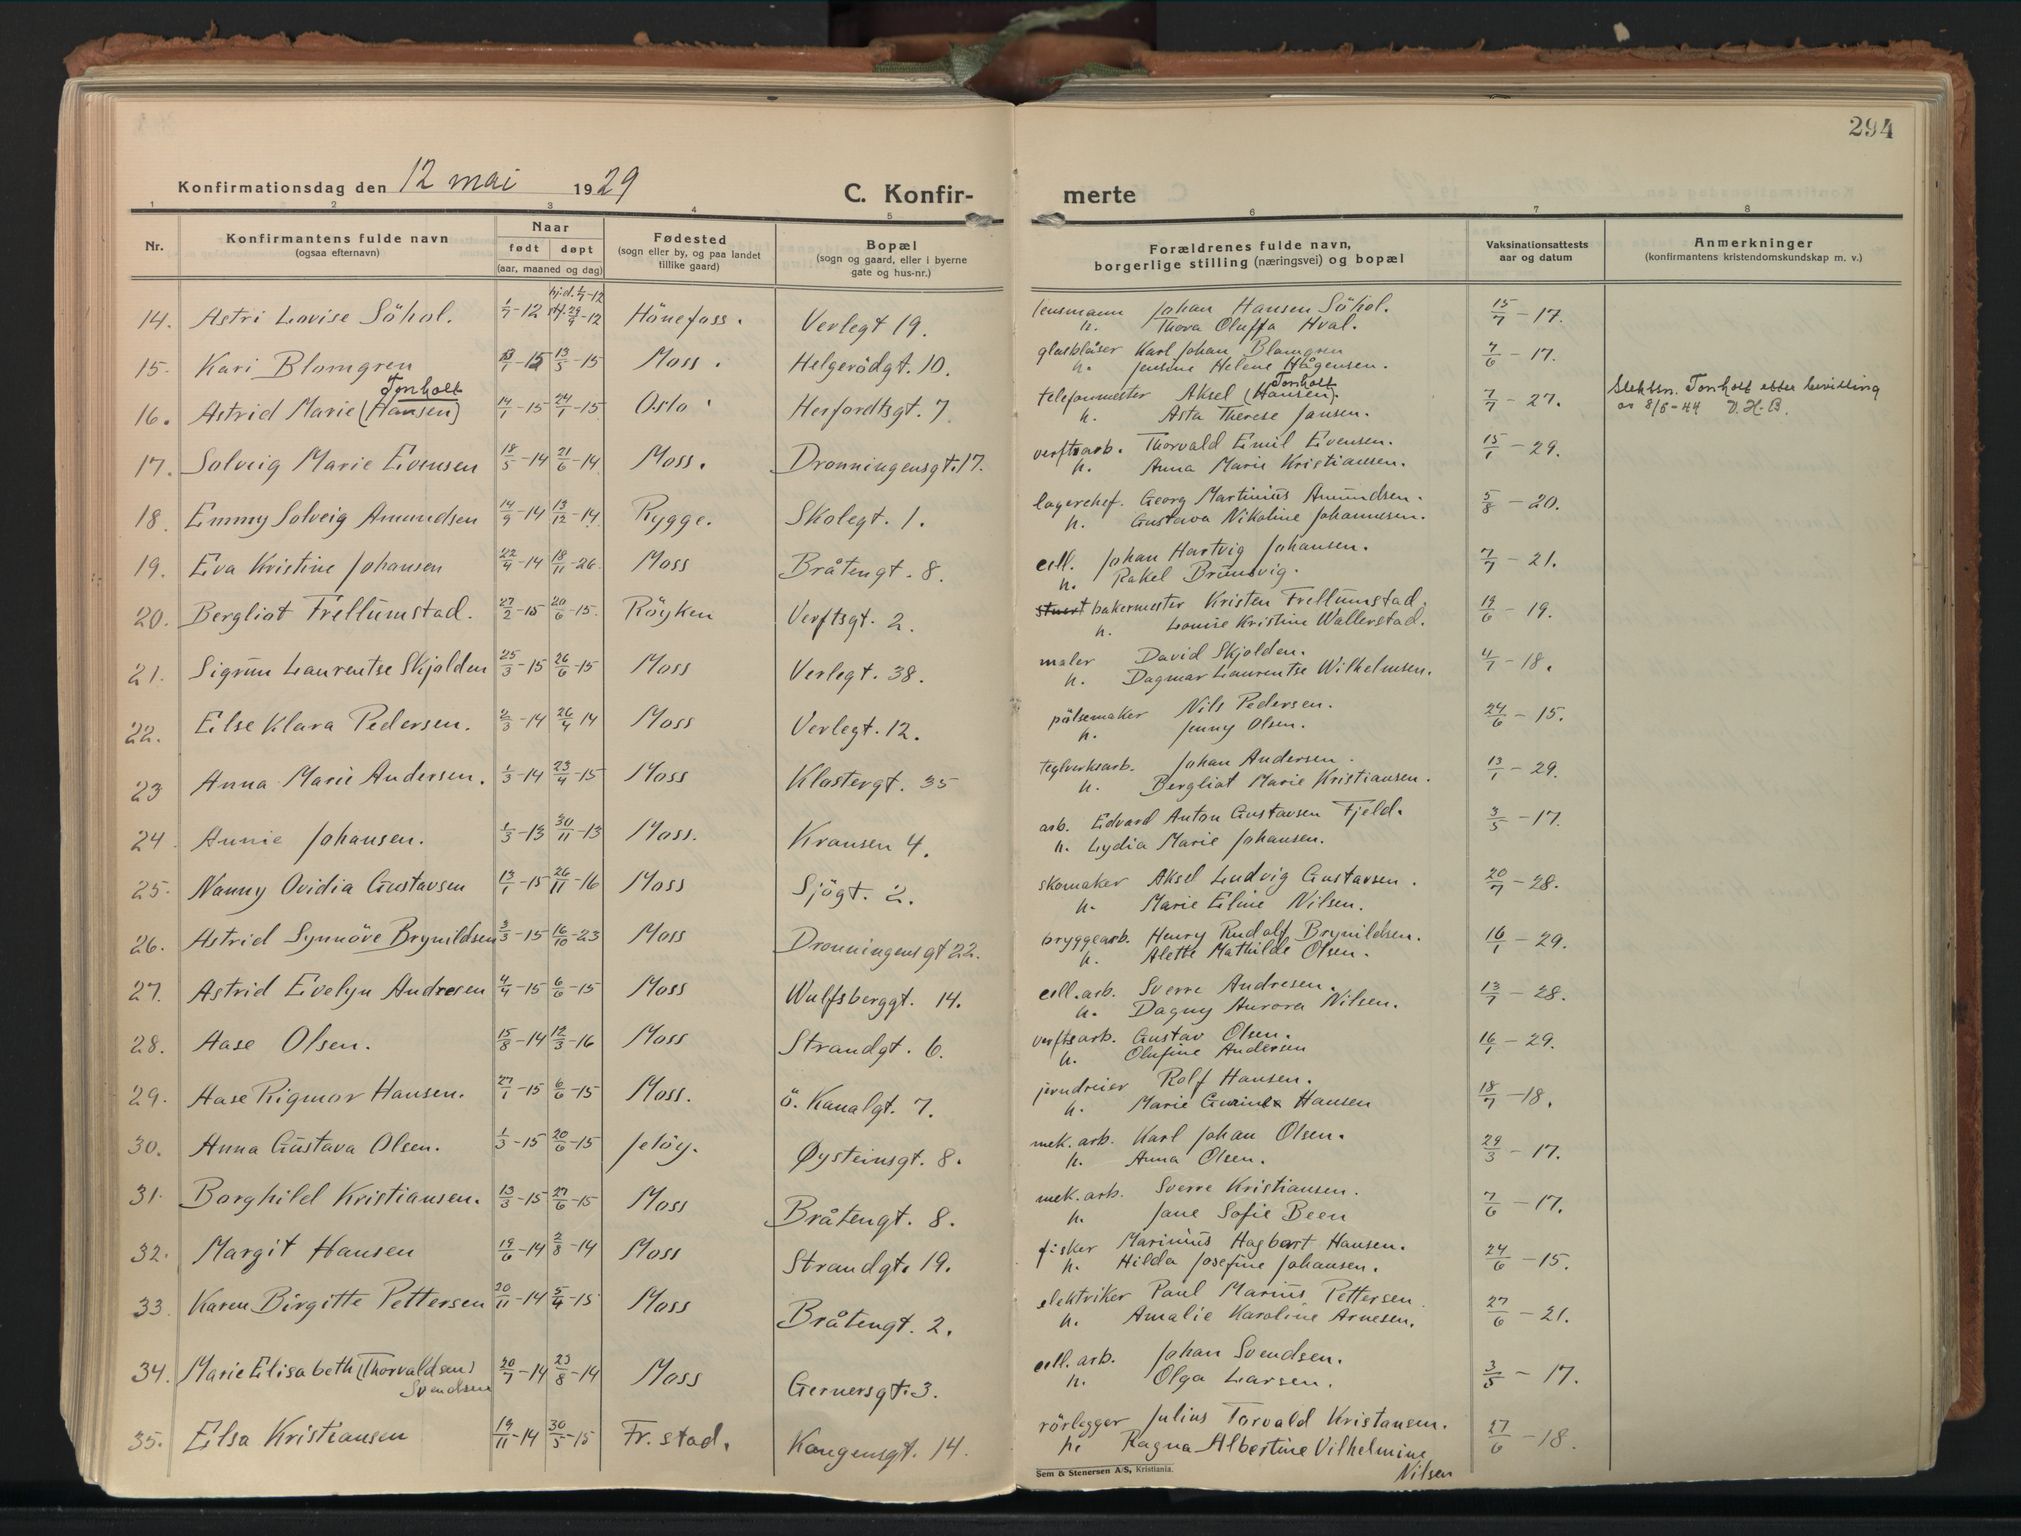 294
Konfirmationsdag den 12 mai 1929
C. Konfir- merte
1 2 3 4 5 6 7 8
Nr.
Konfirmantens fulde navn
(ogsaa efternavn)
Naar
født døpt
(aar, maaned og dag)
Fødested
(sogn eller by, og paa landet
tillike gaard)
Bopæl
(sogn og gaard, eller i byerne
gate og hus-nr.)
Forældrenes fulde navn,
borgerlige stilling (næringsvei) og bopæl
Vaksinationsattests
aar og datum
Anmerkninger
(konfirmantens kristendomskundskap m. v.)
14. Astri Lovise Söhol. 1/7-12 hj.d. 1/7-12 st. 29/9-12 Hönefoss. Verlegt 19. lensmann Johan Hansen Söhol. 15/7-17.
h. Thora Oluffa Hval.
15. Kari Blomgren 13/3-15 Moss. Helgerödgt. 10. glasblåser Karl Johan Blomgren 7/6-17.
h. Jensine Helene Hågensen.
Tonholt Tonholt
16. Astrid Marie (Hansen) 14/1-15 24/1-15 Oslo. Herfordtsgt. 7 telefonmester Aksel (Hansen). 7/7-27. Slektsn. Tonholt efter bevilling
h. Asta Therese Jansen. av 8/6-44 D.H.B.
17. Solveig Marie Evensen 18/5-14 21/6-14. Moss. Dronningensgt. 17. verftsarb. Thorvald Emil Evensen. 15/1-29.
h. Anna Marie Kristiansen.
18. Emmy Solveig Amundsen 14/9-14 13/12-14. Rygge. Skolegt. 1. lagerchef. Georg Martinius Amundsen. 5/8-20.
h. Gustava Nikoline Johannesen.
19. Eva Kristine Johansen 22/9-14 18/11-26. Moss Bråtengt. 8. cell. Johan Hartvig Johansen. 7/7-21.
h. Rakel Brunsvig.
20. Bergliot Frellumstad. 27/2-15 20/6-15. Röyken Verftsgt. 2. stuert bakermester Kristen Frellumstad. 19/6-19.
h. Louise Kristine Wallerstad.
21. Sigrun Laurentse Skjolden 25/3-15 26/6-15 Moss Verlegt. 38. maler David Skjolden. 4/7-18.
h. Dagmar Laurentse Wilhelmsen.
22. Else Klara Pedersen. 2/3-14 26/4 14 Moss Verlegt. 12. pölsemaker Nils Pedersen. 24/6-15.
h. Jenny Olsen.
23 Anna Marie Andersen. 1/3-14 23/4-15 Moss Klostergt. 35 teglverksarb. Johan Andersen. 13/1-29.
h. Bergliot Marie Kristiansen.
24. Annie Johansen. 1/3-13 30/11-13 Moss. Kransen 4. arb. Edvard Anton Gustavsen Fjeld. 3/5-17.
h. Lydia Marie Johansen.
25. Nanny Ovidia Gustavsen 13/1-15 26/11-16 Moss Sjögt. 2. skomaker Aksel Ludvig Gustavsen. 20/7-28.
h. Marie Eline Nilsen.
26. Astrid Synnöve Brynildsen 3/3-15 16/10-23 Moss Dronningensgt 22. bryggearb. Henry Rudolf Brynildsen. 16/1-29.
h. Alette Mathilde Olsen.
27. Astrid Evelyn Andresen 4/4-15 6/6-15 Moss Wulfsberggt. 14. cell.arb. Sverre Andresen. 13/7-28.
h. Dagny Aurora Nilsen.
28. Aase Olsen. 15/8-14 12/3-16 Moss Strandgt. 6. verftsarb. Gustav Olsen. 16/1-29.
h. Olufine Andersen
29. Aase Rigmor Hansen. 27/1-15 6/6-15 Moss. ö. Kanalgt. 7. jerndreier Rolf Hansen. 18/7-18.
h. Marie Hansen
30. Anna Gustava Olsen. 1/3-15 20/6-15 Jelöy. Øysteinsgt. 8. mek. arb. Karl Johan Olsen. 29/3-17.
h. Anna Olsen.
31. Borghild Kristiansen. 13/3-15 27/6-15 Moss Bråtengt. 8. mek. arb. Sverre Kristiansen. 7/6-17.
h. Jane Sofie Been
32. Margit Hansen 19/6-14 2/8-14 Moss Strandgt. 19. fisker Marinius Hagbart Hansen. 24/6-15.
h. Hilda Josefine Johansen.
33. Karen Birgitte Pettersen 20/11-14 5/4-15 Moss Bråtengt. 2. elektriker Paul Marius Pettersen 27/6-21.
h. Amalie Karoline Arnesen.
34. Marie Elisabeth (Thorvaldsen) 20/7-14 23/8-14 Moss Gernersgt. 3. cell. arb. Johan Svendsen. 3/5-17.
Svendsen h. Olga Larsen.
35. Elsa Kristiansen 19/11-14 30/5-15 Fr.stad. Kongensgt. 14. rörlegger Julius Torvald Kristansen. 27/6-18.
h. Ragna Albertine Vilhelmine
Nilsen
Sem & Stenersen A/S, Kristiania.